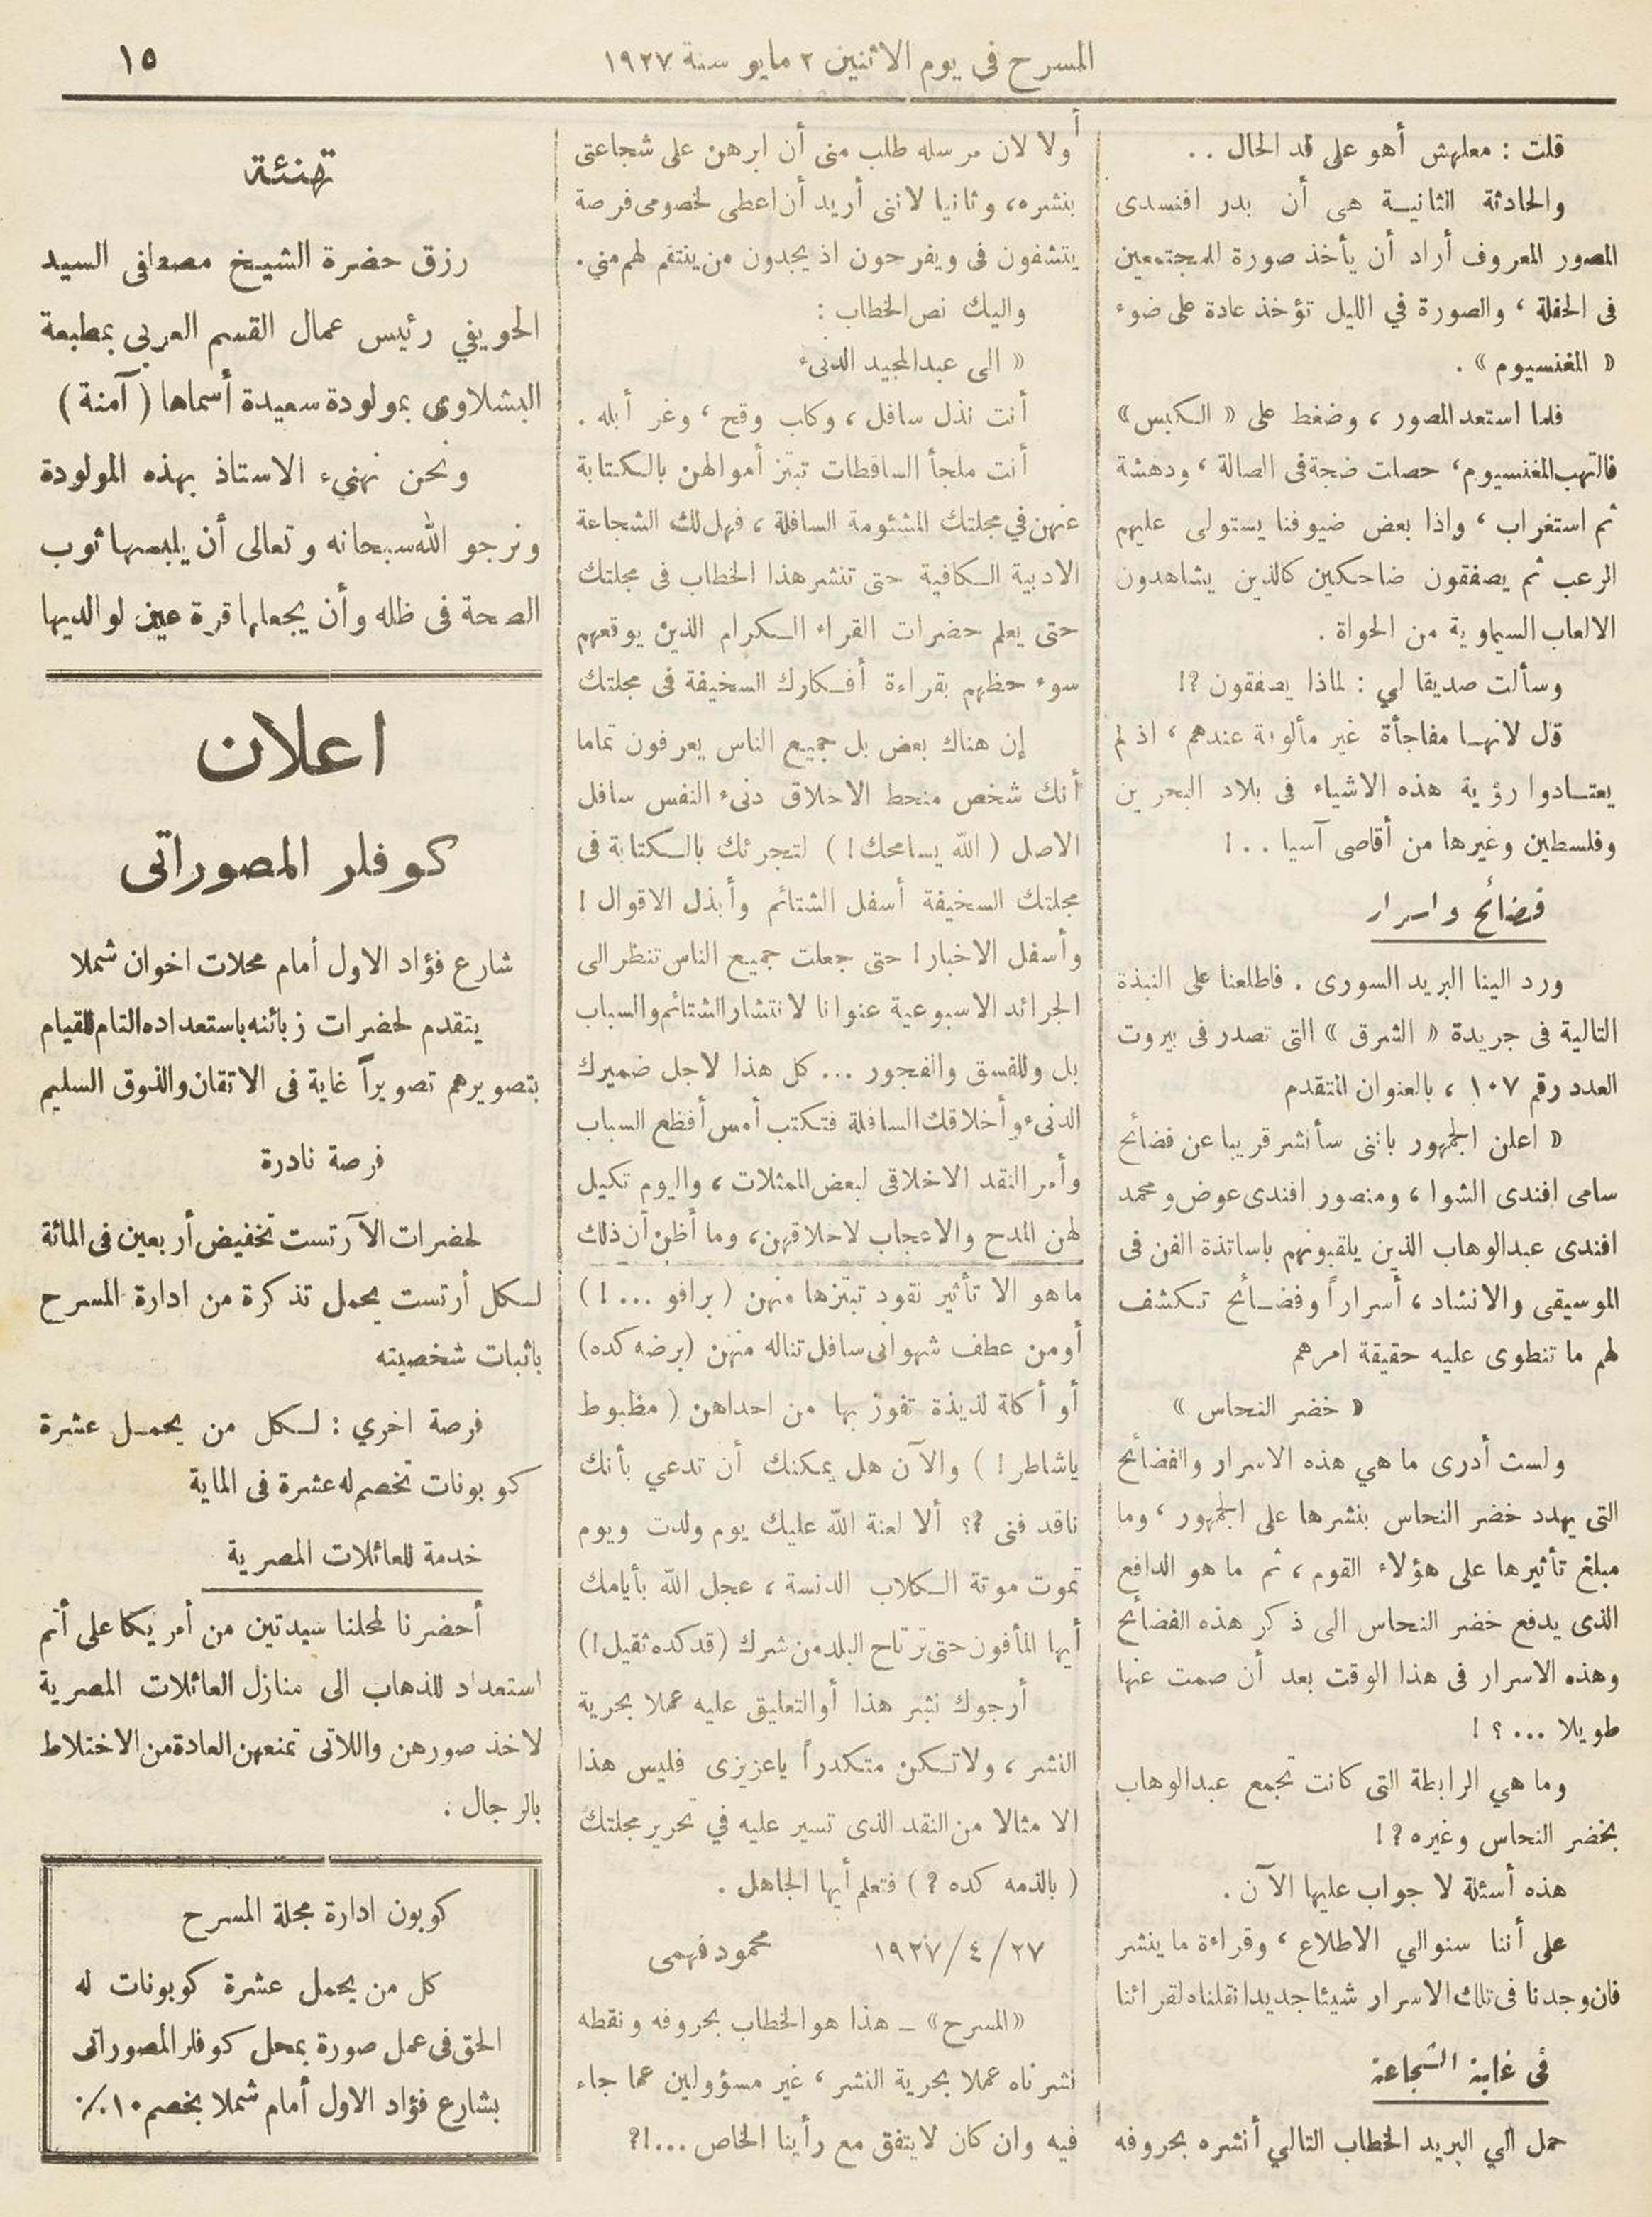 المسرح فى يوم الاثنين ٢ مايو سنة ١٩٢٧
١٥
قلت : معلهش أهو على قد الحال . .
والحادثة الثانيـة هى أن بدر افنـدى
المصور المعروف أراد أن يأخذ صورة للمجتمعين
فى الحفلة ، والصورة في الليل تؤخذ عادة على ضوء
« المغنسيوم » .
فلما استعد المصور ، وضغط على « الـكبس »
فالتهب المغنسيوم ، حصلت ضجة فى الصالة ، ودهشة
ثم استغراب ، واذا بعض ضيوفنا يستولى عليهم
الرعب ثم يصفقون ضاحكين كالذين يشاهدون
الالعاب السيماوية من الحواة .
وسألت صديقا لي : لماذا يصفقون ?!
قال لانهـا مفاجأة غير مألوفة عندهم ، اذ لم
يعتـادوا رؤية هذه الاشياء فى بلاد البحرين
وفلسطين وغيرها من أقاصى آسيا . . !
فضائح واسرار
ورد الينا البريد السورى . فاطلعنا على النبذة
التالية فى جريدة « الشرق » التى تصدر فى بيروت
العدد رقم ١٠٧ ، بالعنوان المتقدم
« اعلن الجمهور بانى سأنشر قريبا عن فضائح
سامى افندى الشوا ، ومنصور افندى عوض ومحمد
افندى عبدالوهاب الذين يلقبونهم باساتذة الفن فى
الموسيقى والانشاد ، أسراراً وفضـائح تـكشف
لهم ما تنطوى عليه حقيقة امرهم
« خضر النحاس »
ولست أدرى ما هي هذه الاسرار والفضائح
التى يهدد خضر النحاس بنشرها على الجمهور ، وما
مبلغ تأثيرها على هؤلاء القوم ، ثم ما هو الدافع
الذى يدفع خضر النحاس الى ذكر هذه الفضائح
وهذه الاسرار فى هذا الوقت بعد أن صمت عنها
طويلا ... ؟ !
وما هي الرابطة التى كانت تجمع عبدالوهاب
بخضر النحاس وغيره ? !
هذه أسئلة لا جواب عليها الآن .
على أننا سنوالي الاطلاع ، وقراءة ما ينشر
فان وجدنا فى تلك الاسرار شيئا جديدا نقلناه لقرائنا
فى غاية الشجاعة
حمل الي البريد الخطاب التالي أنشره بحروفه
أولا لان مرسله طلب منى أن ابرهن على شجاعتى
بنشره ، وثانيا لاننى أريد أن اعطى لخصومى فرصة
يتشفون فى ويفرحون اذ يجدون من ينتقم لهم مني .
واليك نص الخطاب :
« الى عبدالمجيد الدنىء
أنت نذل سافل ، وكاب وقح ، وغر أبله .
أنت ملجأ الساقطات تبتز أموالهن بالـكتابة
عنهن في مجلتك المشئومة السافلة ، فهل لك الشجاعة
الادبية الـكافية حتى تنشر هذا الخطاب فى مجلتك
حتى يعلم حضرات القراء الـكرام الذين يوقعهم
سوء حظهم بقراءة أفـكارك السخيفة فى مجلتك
إن هناك بعض بل جميع الناس يعرفون تماما
أنك شخص منحط الاخلاق دنىء النفس سافل
الاصل ( الله يسامحك ! ) لتجرئك بالـكتابة فى
مجلتك السخيفة أسفل الشتائم وأبذل الاقوال !
وأسفل الاخبار ! حتى جعلت جميع الناس تنظر الى
الجرائد الاسبوعية عنوانا لانتشار الشتائم والسباب
بل وللفسق والفجور ... كل هذا لاجل ضميرك
الدنىء وأخلاقك السافلة فتكتب أمس أفظع السباب
وأمر النقد الاخلاقى لبعض الممثلات ، واليوم تكيل
لهن المدح والاعجاب لاخلاقهن ، وما أظن أن ذلك
ماهو الا تأثير نقود تبتزها منهن ( برافو ... ! )
أومن عطف شهوانى سافل تناله منهن ( برضه كده )
أو أكلة لذيذة تفوز بها من احداهن ( مظبوط
ياشاطر ! ) والآن هل يمكنك أن تدعي بأنك
ناقد فنى ?؟ ألا لعنة الله عليك يوم ولدت ويوم
تموت موتة الـكلاب الدنسة ، عجل الله بأيامك
أيها المأفون حتى ترتاح البلد من شرك ( قد كده ثقيل ! )
أرجوك نشر هذا أو التعليق عليه عملا بحرية
النشر ، ولا تـكن متكدراً ياعزيزى فليس هذا
الا مثالا من النقد الذى تسير عليه في تحرير مجلتك
( بالذمه كده ? ) فتعلم أيها الجاهل .
٢٧ / ٤ / ١٩٢٧ محمود فهمى
«المسرح» ــ هذا هو الخطاب بحروفه ونقطه
نشرناه عملا بحرية النشر ، غير مسؤولين عما جاء
فيه وان كان لا يتفق مع رأينا الخاص ...!?
تهنئة
رزق حضرة الشيخ مصطفى السيد
الحويفي رئيس عمال القسم العربي بمطبعة
البشلاوى بمولودة سعيدة أسماها ( آمنة )
ونحن نهنىء الاستاذ بهذه المولودة
ونرجو الله سبحانه وتعالى أن يلبسها ثوب
الصحة فى ظله وأن يجعلها قرة عين لوالديها
اعلان
كوفلر المصوراتى
شارع فؤاد الاول أمام محلات اخوان شملا
يتقدم لحضرات زبائنه باستعداده التام للقيام
بتصويرهم تصويراً غاية فى الاتقان والذوق السليم
فرصة نادرة
لحضرات الآرتست تخفيض أربعين فى المائة
لـكل أرتست يحمل تذكرة من ادارة المسرح
باثبات شخصيته
فرصة اخري : لـكل من يحمـل عشرة
كوبونات تخصم له عشرة فى الماية
خدمة للعائلات المصرية
أحضرنا لمحلنا سيدتين من أمريكا على أتم
استعداد للذهاب الى منازل العائلات المصرية
لاخذ صورهن واللاتى تمنعهن العادة من الاختلاط
بالرجال .
كوبون ادارة مجلة المسرح
كل من يحمل عشرة كوبونات له
الحق فى عمل صورة بمحل كوفلر المصوراتى
بشارع فؤاد الاول أمام شملا بخصم ١٠ ٪